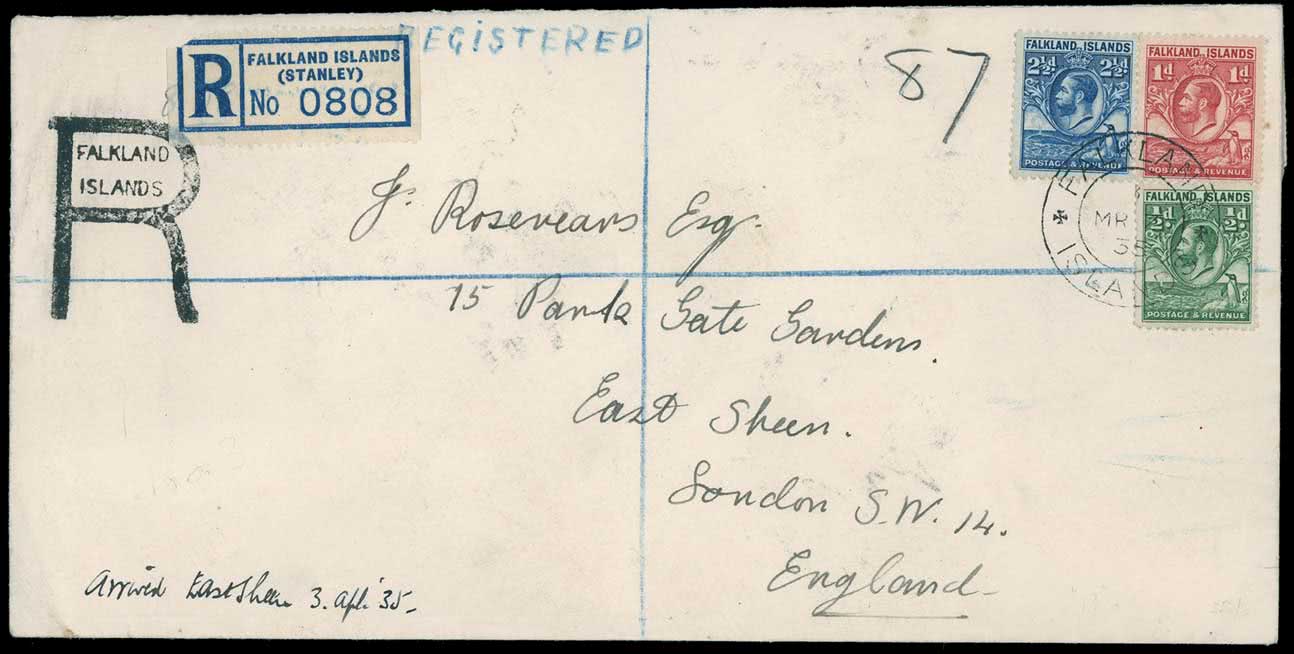 REGISTERED
R FALKLAND ISLANDS
(STANLEY)
No 0808
87
FALKLAND
ISLANDS
FALKLAND ISLANDS
2½d 2½d
POSTAGE & REVENUE
FALKLAND ISLANDS
1d 1d
POSTAGE & REVENUE
FALKLAND ISLANDS
½d ½d
POSTAGE & REVENUE
FALKLAND
MR
35
ISLA
J. Rosevears Esq.
75 Park Gate Gardens.
East Sheen.
London S.W. 14.
England
Arrived East Sheen 3. apl. '35